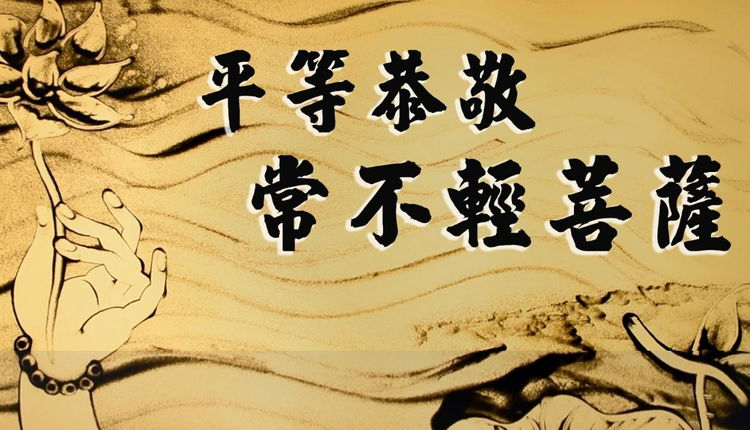 平等恭敬
常不輕菩薩